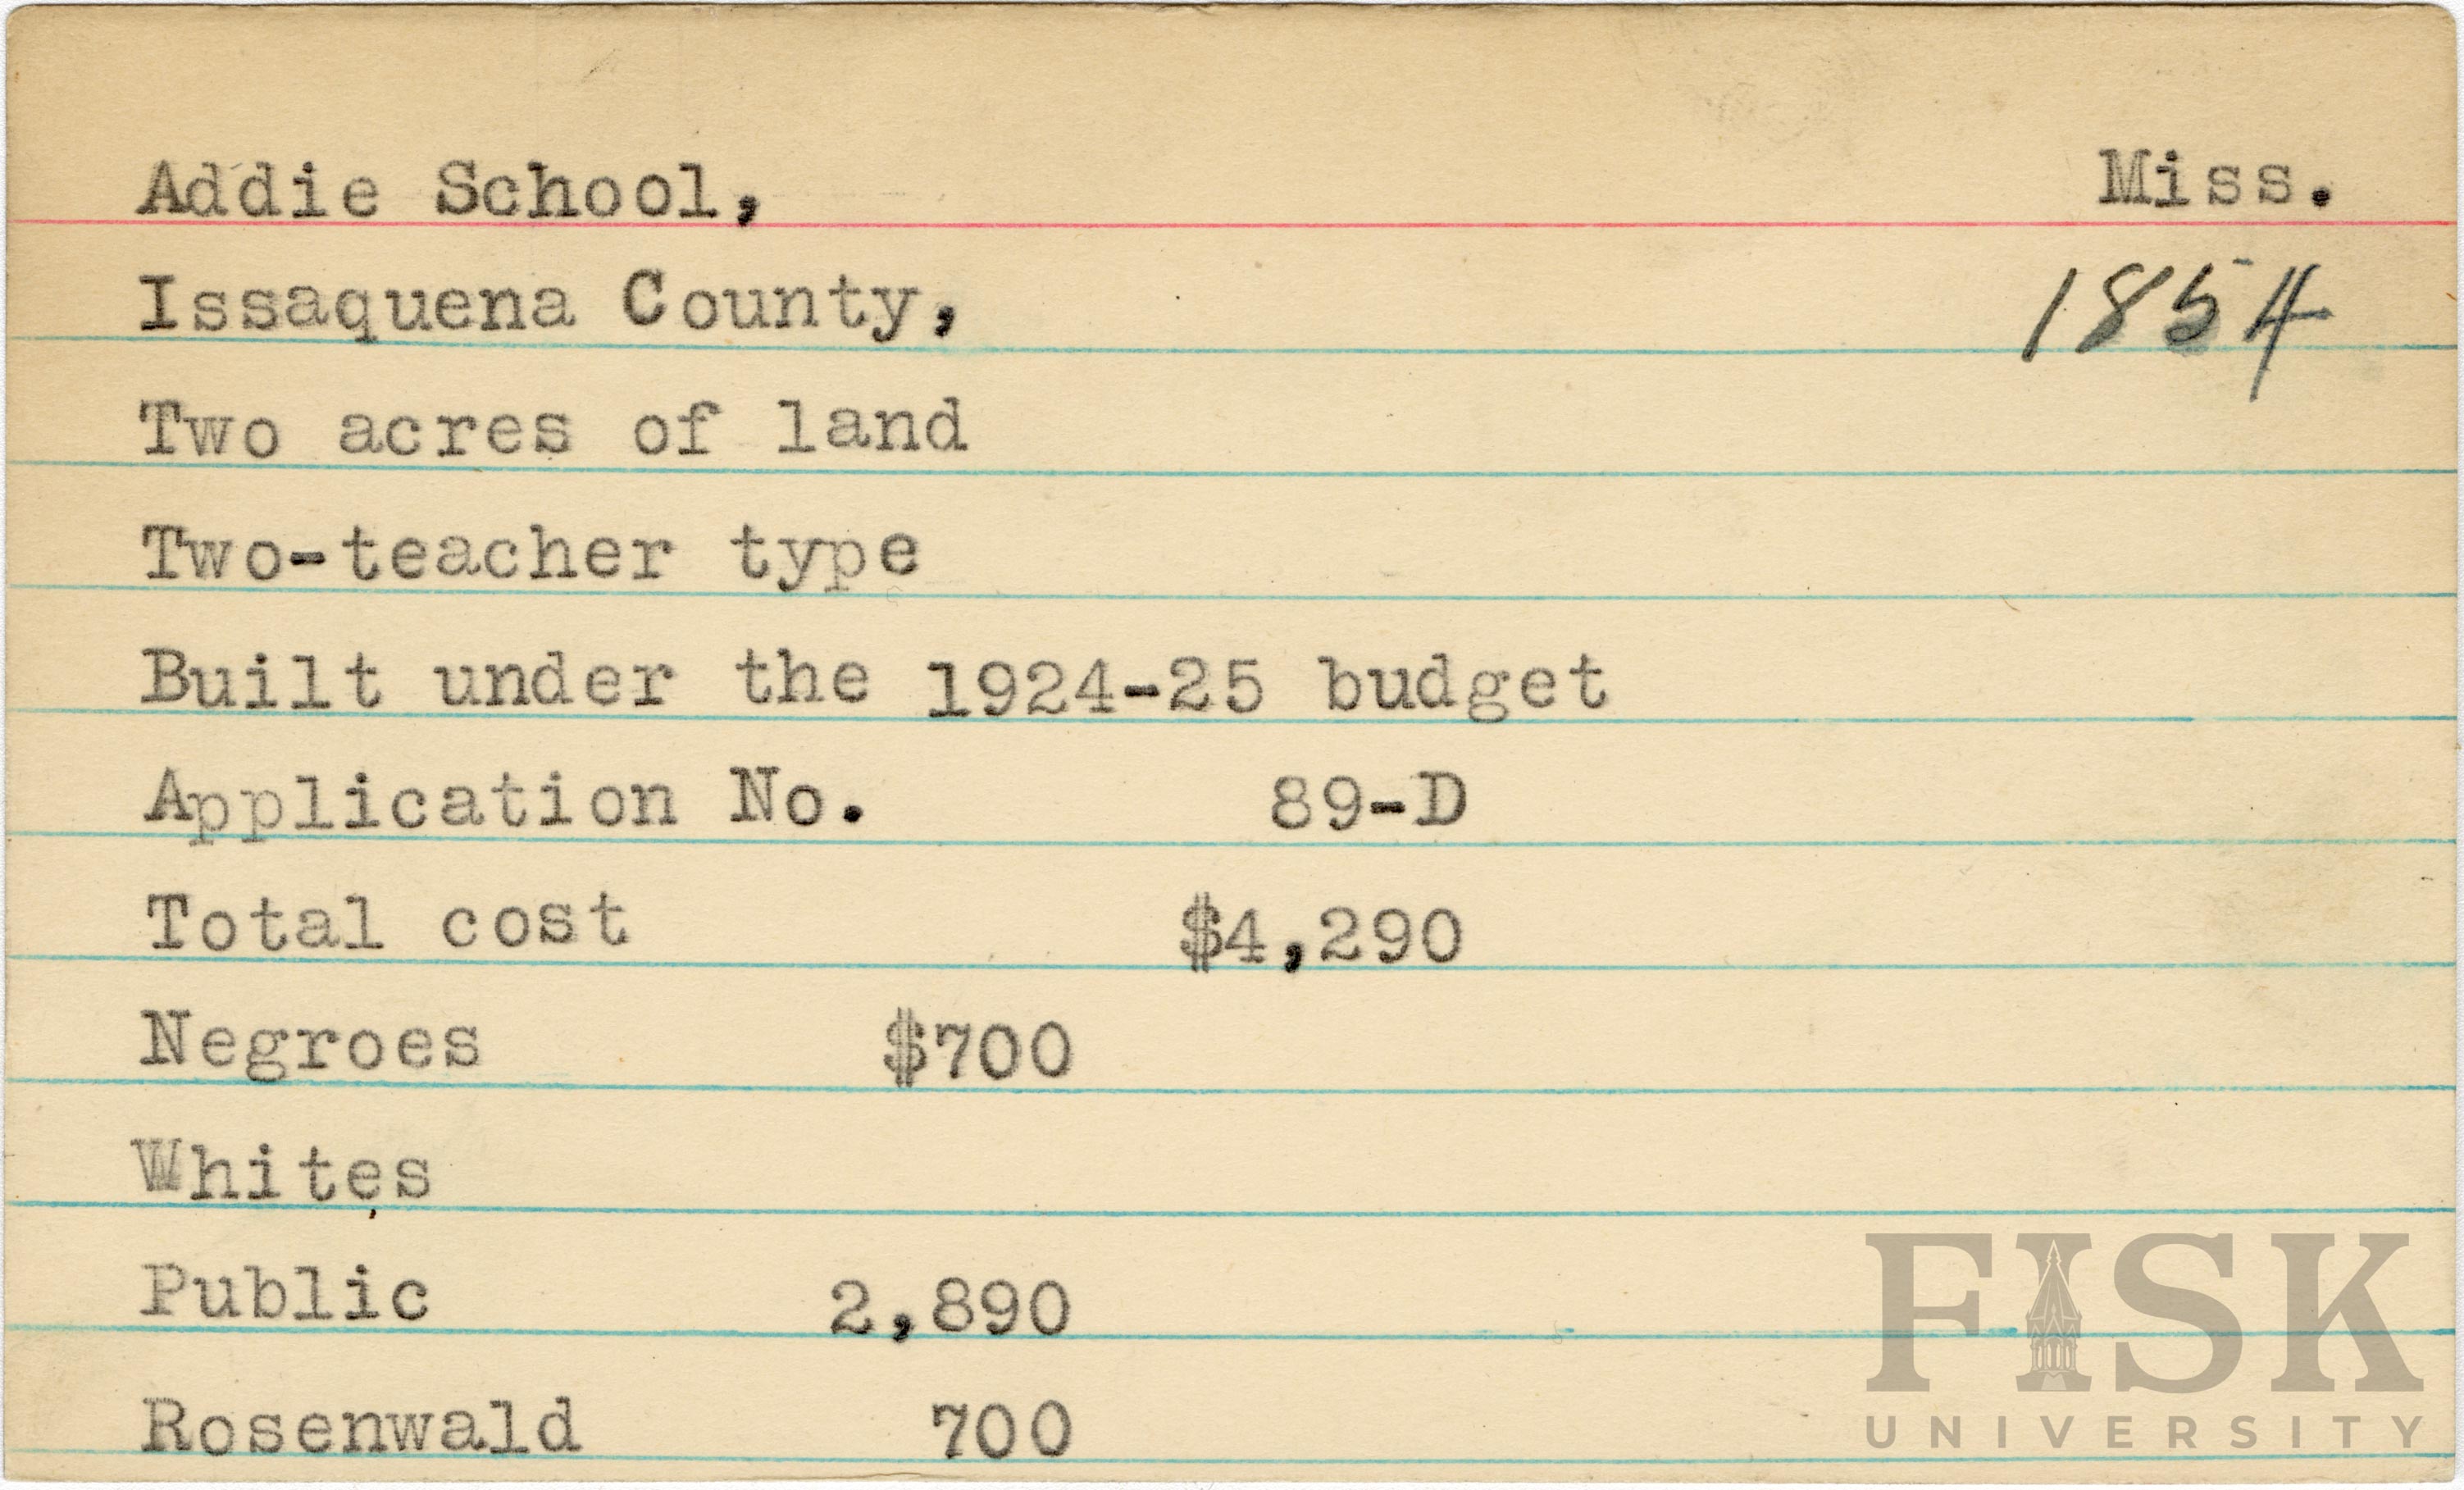 Addie School, Miss.
Issaquena County, 1854
Two acres of land
Two-teacher type
Built under the 1924-25 budget
Application No. 89-D
Total cost $4,290
Negroes $700
Whites
Public 2,890
Rosenwald 700
FISK
UNIVERSITY